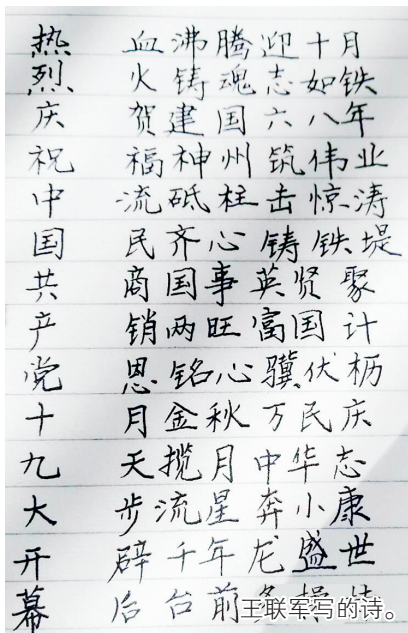 热 血沸腾迎十月
烈 火铸魂志如铁
庆 贺建国六八年
祝 福神州筑伟业
中 流砥柱击惊涛
国 民齐心铸铁堤
共 商国事英贤聚
产 销两旺富国计
党 恩铭心骥伏枥
十 月金秋万民庆
九 天揽月中华志
大 步流星奔小康
开 辟千年龙盛世
幕 后台前
王联军写的诗。